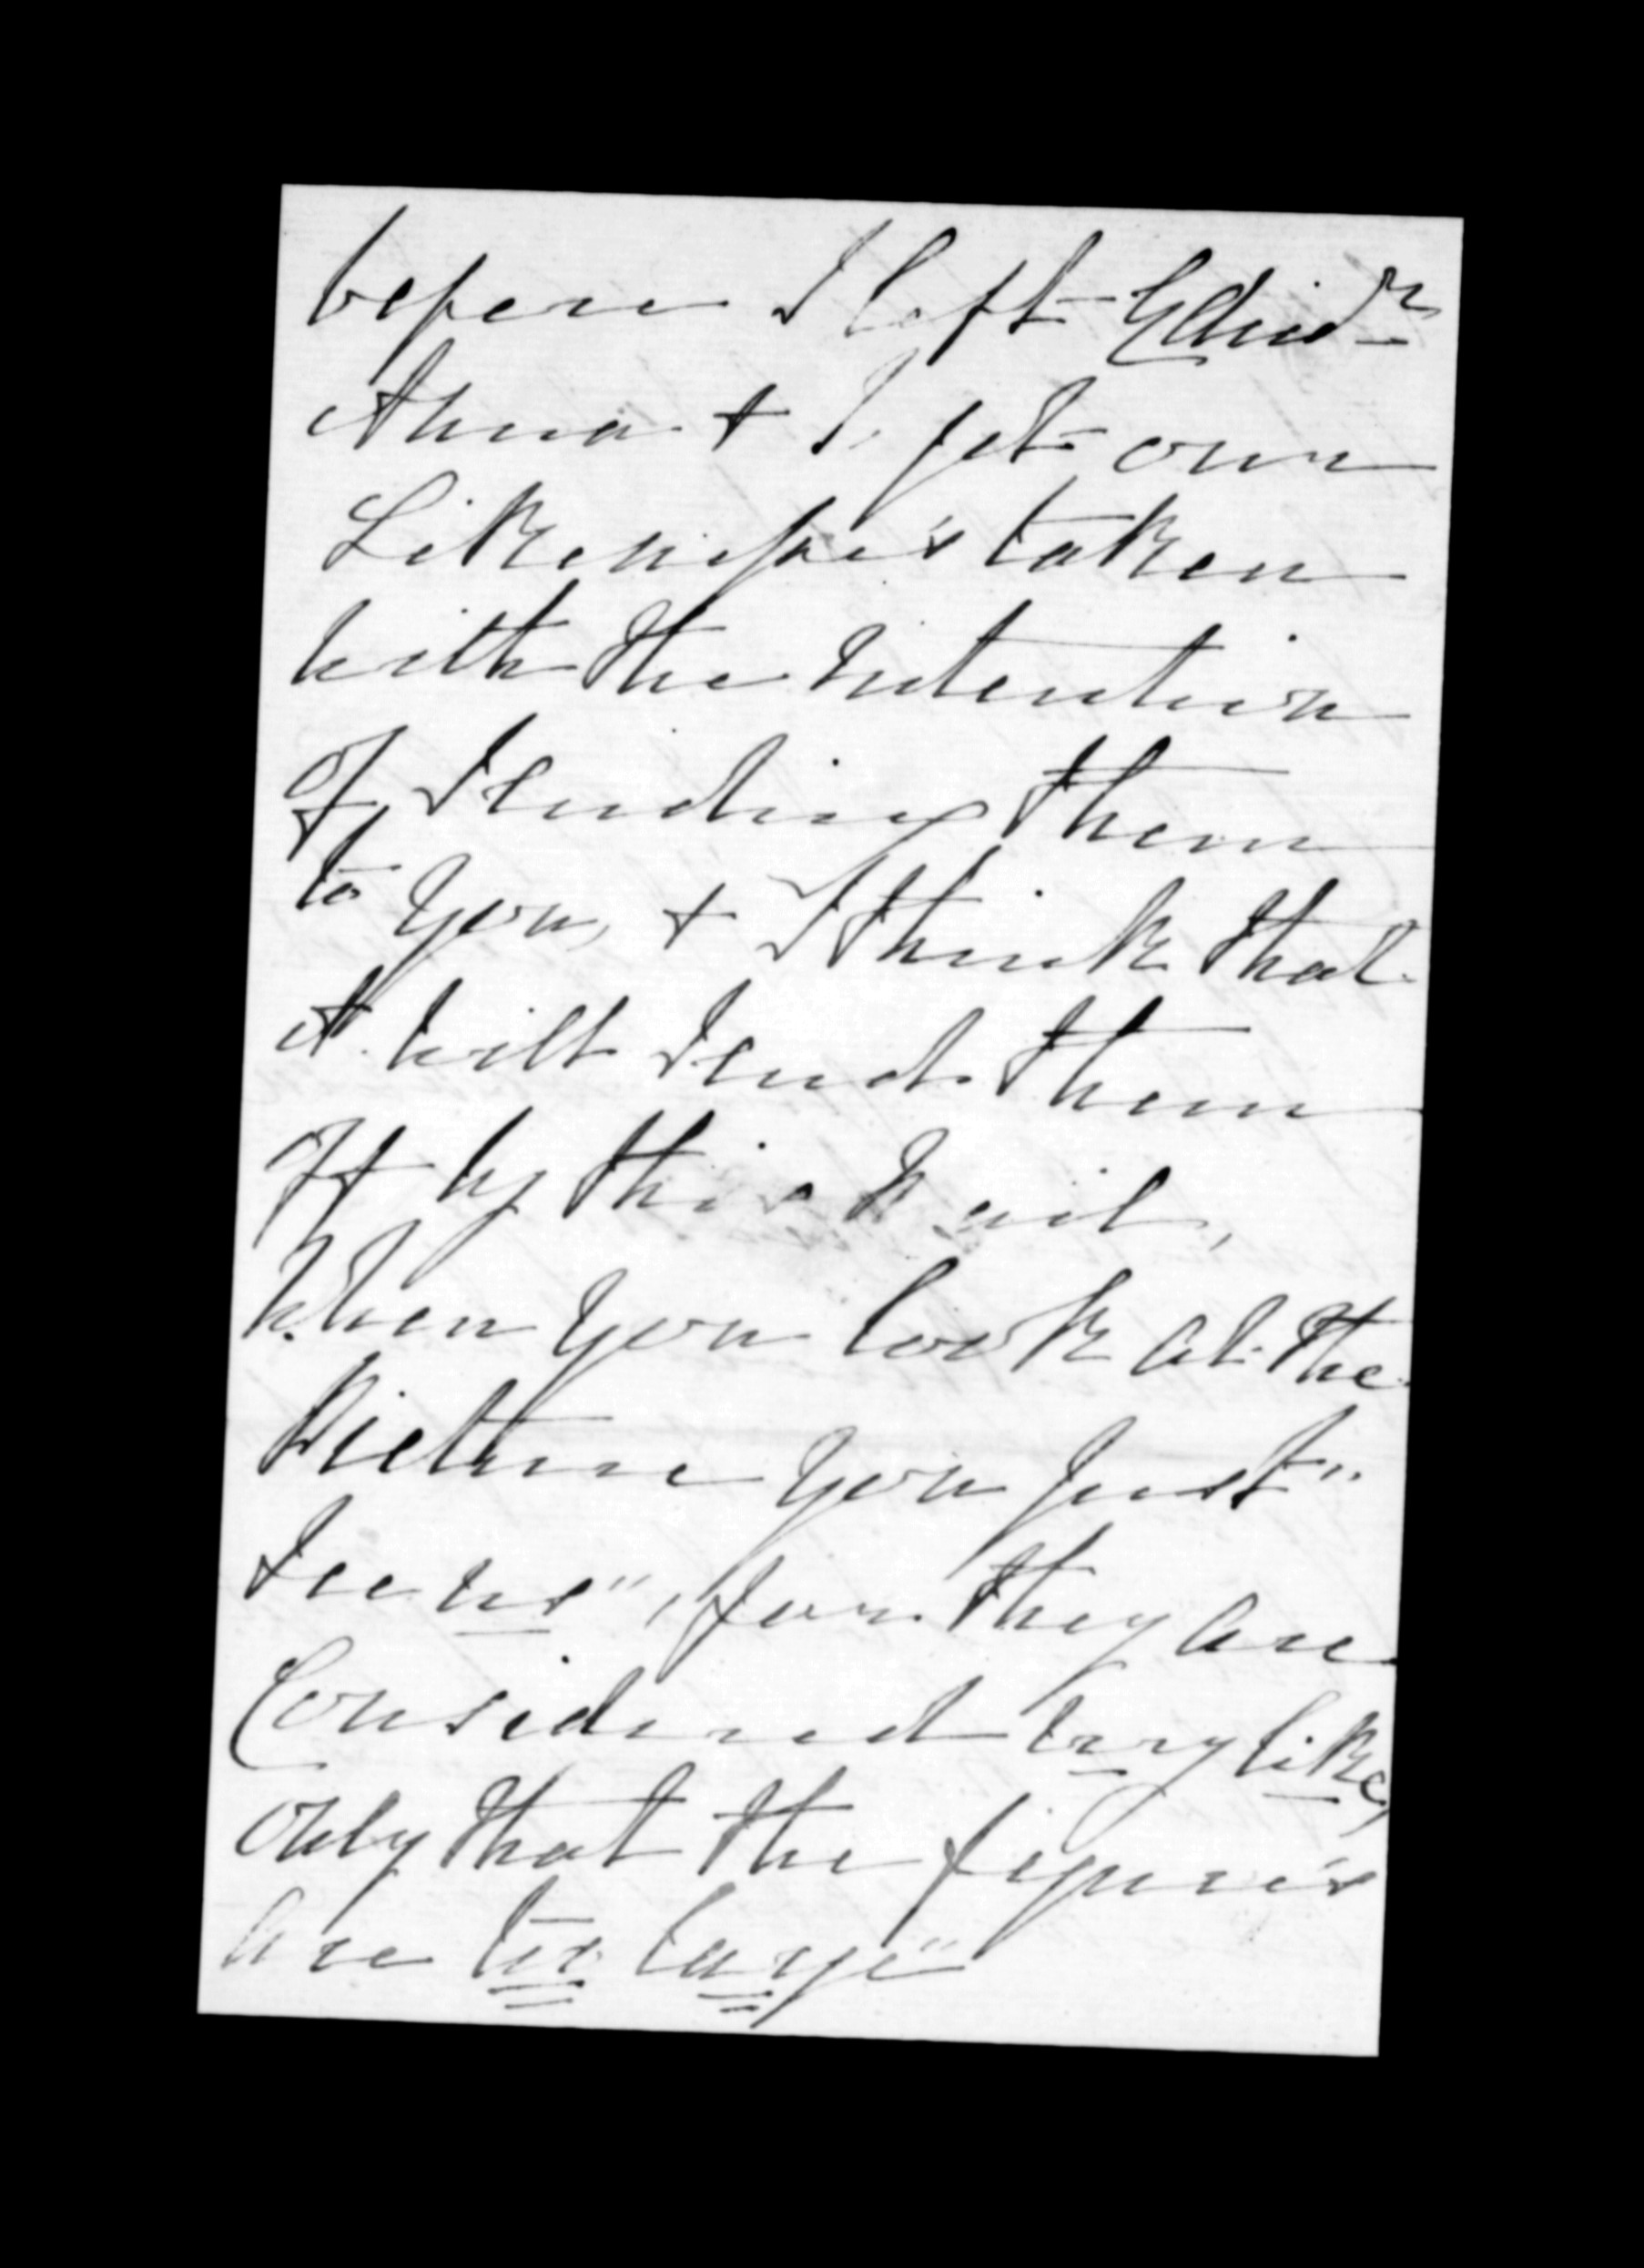 before I left Edinr
Anna & I got our
Likenesses taken
with the intention
of Sending them
to you, & I think that
A will Send them
off by this Mail,
When you look at the
Picture you just "
See us", for they are
Considered very like,
only that the figures
are too large"